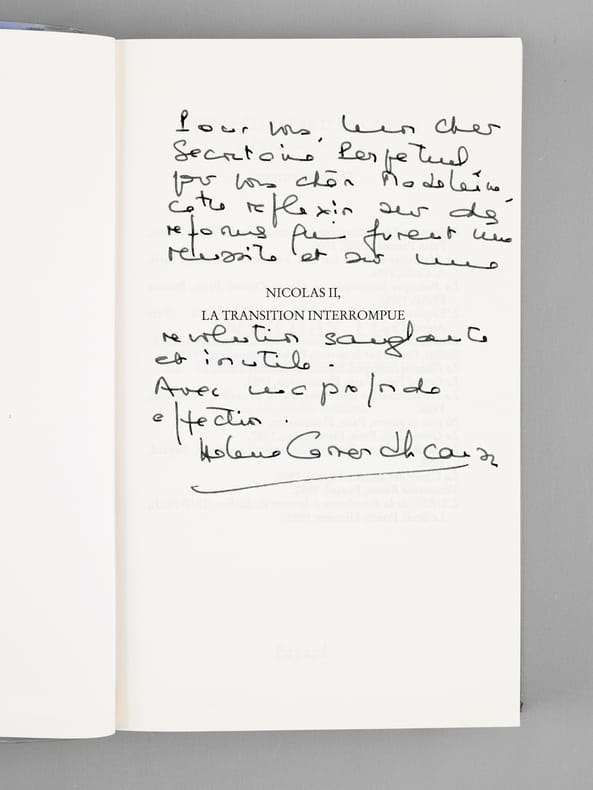 Pour vous, mon cher
Secrétaire Perpétuel
pour vous chère Madeleine,
cette reflexion sur des
reformes qui furent une
reussite et sur une
NICOLAS II,
LA TRANSITION INTERROMPUE
revolution sanglante
et inutile.
Avec ma profonde
affection.
Helene Carrere d'Encausse